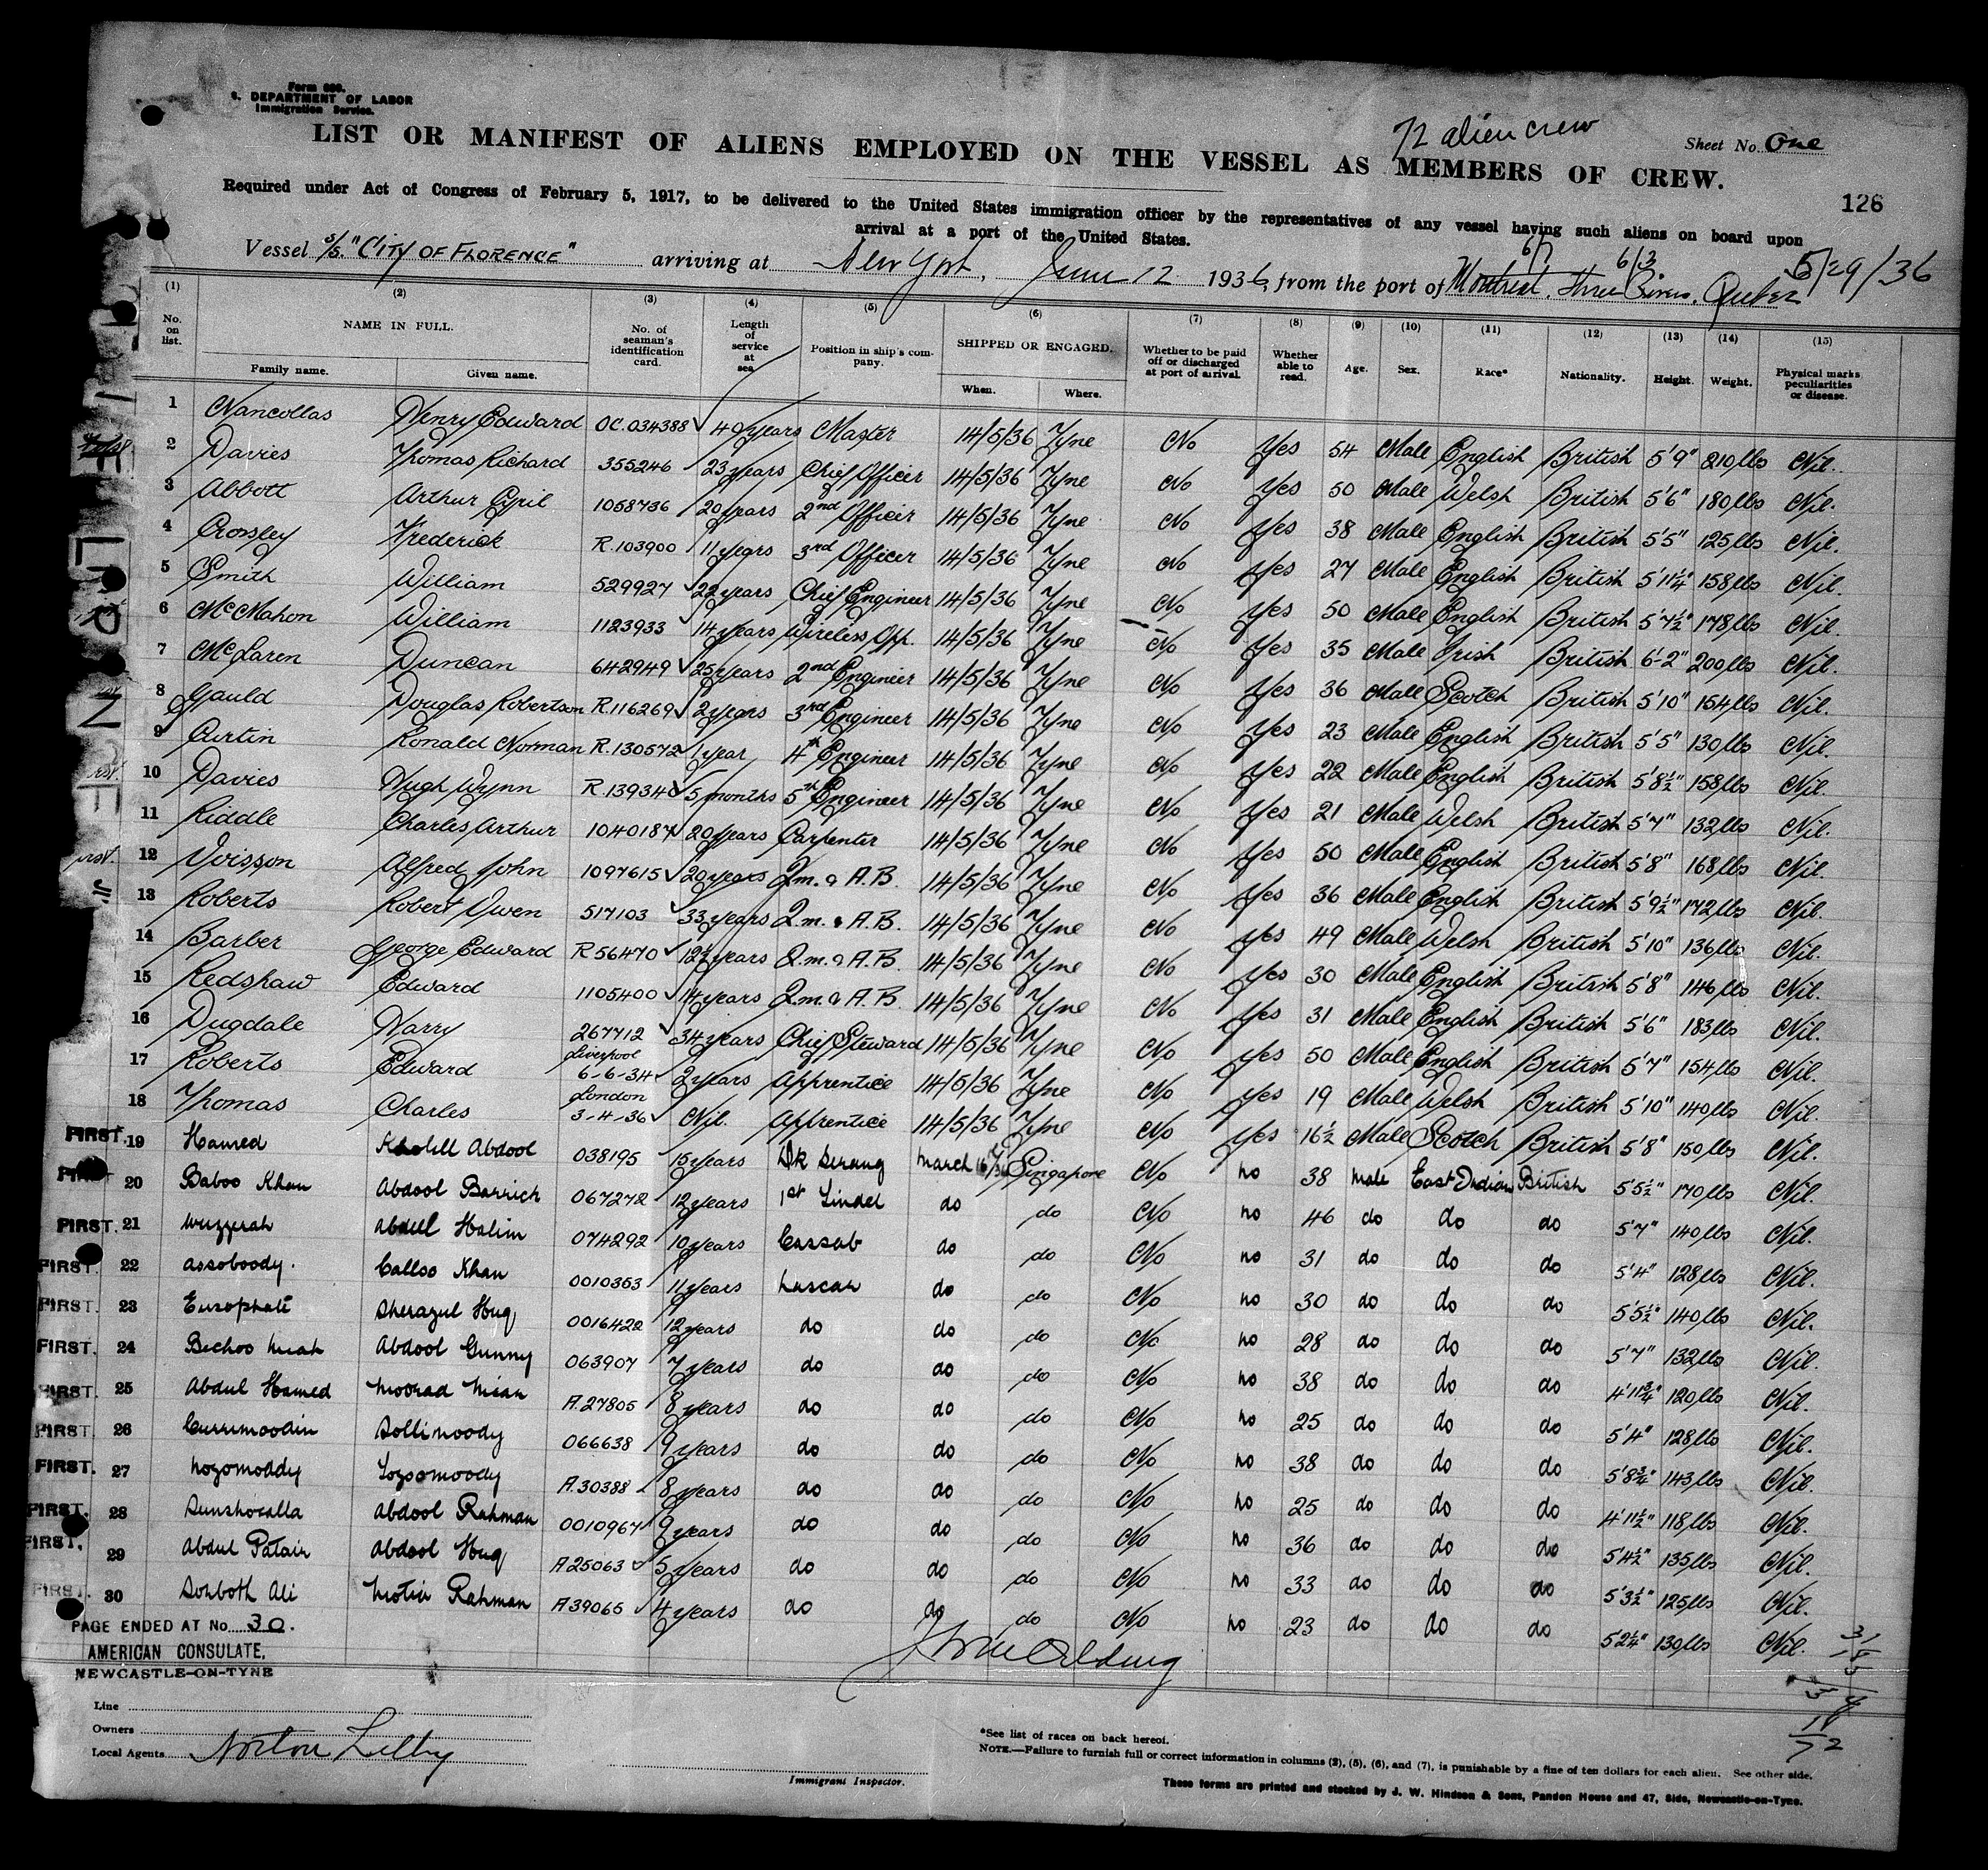 Form 680.
S. DEPARTMENT OF LABOR
Immigration Service.
72 alien crew
Sheet No. One
LIST OR MANIFEST OF ALIENS EMPLOYED ON THE VESSEL AS MEMBERS OF CREW.
126
Required under Act of Congress of February 5, 1917, to be delivered to the United States immigration officer by the representatives of any vessel having such aliens on board upon
arrival at a port of the United States.
6/7 6/3. 5/29/36
Vessel S/S. "CITY OF FLORENCE" arriving at New York, June 12 1936, from the port of Montreal, Three Rivers, Quebec
(1) (2) (3) (4) (5) (6) (7) (8) (9) (10) (11) (12) (13) (14) (15)
No. on list. NAME IN FULL. Family name. Given name. No. of seaman's identification card. Length of service at sea Position in ship's company. SHIPPED OR ENGAGED. When. Where. Whether to be paid off or discharged at port of arrival. Whether able to read. Age. Sex. Race* Nationality. Height. Weight. Physical marks peculiarities or disease.
1 Nancollas Henry Edward OC.034388 40 years Master 14/5/36 Tyne No Yes 54 Male English British 5'9" 210 lbs Nil.
2 Davies Thomas Richard 355246 23 years Chief Officer 14/5/36 Tyne No Yes 50 Male Welsh British 5'6" 180 lbs Nil.
3 Abbott Arthur Cyril 1058736 20 years 2nd Officer 14/5/36 Tyne No Yes 38 Male English British 5'5" 125 lbs Nil.
4 Crossley Frederick R.103900 11 years 3rd Officer 14/5/36 Tyne No Yes 27 Male English British 5'11¼" 158 lbs Nil.
5 Smith William 529927 22 years Chief Engineer 14/5/36 Tyne No Yes 50 Male English British 5'7½" 178 lbs Nil.
6 McMahon William 1123933 14 years Wireless Opp. 14/5/36 Tyne No Yes 35 Male Irish British 6'-2" 200 lbs Nil.
7 McLaren Duncan 642949 25 years 2nd Engineer 14/5/36 Tyne No Yes 36 Male Scotch British 5'10" 154 lbs Nil.
8 Gauld Douglas Robertson R.116269 2 years 3rd Engineer 14/5/36 Tyne No Yes 23 Male English British 5'5" 130 lbs Nil.
9 Airtin Ronald Norman R.130572 1 year 4th Engineer 14/5/36 Tyne No Yes 22 Male English British 5'8½" 158 lbs Nil.
10 Davies Hugh Wynn R.139340 5 months 5th Engineer 14/5/36 Tyne No Yes 21 Male Welsh British 5'7" 132 lbs Nil.
11 Riddle Charles Arthur 1040187 20 years Carpenter 14/5/36 Tyne No Yes 50 Male English British 5'8" 168 lbs Nil.
12 Voisson Alfred John 1097615 20 years Q.m. & A.B. 14/5/36 Tyne No Yes 36 Male English British 5'9½" 172 lbs Nil.
13 Roberts Robert Owen 517103 33 years Q.m. & A.B. 14/5/36 Tyne No Yes 49 Male Welsh British 5'10" 136 lbs Nil.
14 Barber George Edward R56470 12½ years Q.m. & A.B. 14/5/36 Tyne No Yes 30 Male English British 5'8" 146 lbs Nil.
15 Redshaw Edward 1105400 14 years Q.m. & A.B. 14/5/36 Tyne No Yes 31 Male English British 5'6" 183 lbs Nil.
16 Dugdale Harry 267712 34 years Chief Steward 14/5/36 Tyne No Yes 50 Male English British 5'7" 154 lbs Nil.
17 Roberts Edward Liverpool 6-6-34 2 years Apprentice 14/5/36 Tyne No Yes 19 Male Welsh British 5'10" 140 lbs Nil.
18 Thomas Charles London 3-4-36 Nil. Apprentice 14/5/36 Tyne No Yes 16½ Male Scotch British 5'8" 150 lbs Nil.
FIRST. 19 Hamed Kholill Abdool 038195 15 years Dk Serang March 16/36 Singapore No no 38 male East Indian British 5'5½" 170 lbs Nil.
FIRST 20 Baboo Khan Abdool Barrich 067278 12 years 1st Tindel do do No no 46 do do do 5'7" 140 lbs Nil.
FIRST. 21 Wuzzerah Abdul Halim 074292 10 years Cassab do do No no 31 do do do 5'4" 128 lbs Nil.
FIRST. 22 Assoboody. Calloo Khan 0010363 11 years Lascar do do No no 30 do do do 5'5½" 140 lbs Nil.
FIRST. 23 Eusophali Sherazul Huq 0016422 12 years do do do No no 28 do do do 5'7" 132 lbs Nil.
FIRST. 24 Bechoo Miah Abdool Gunny 063907 7 years do do do No no 38 do do do 4'11¾" 120 lbs Nil.
FIRST. 25 Abdul Hamed Moorad Miah A.27805 8 years do do do No no 25 do do do 5'4" 128 lbs Nil.
FIRST. 26 Currimoodin Sollimoody 066638 9 years do do do No no 38 do do do 5'8¾" 143 lbs Nil.
FIRST. 27 Nozomoddy Tozoomoody A.30388 8 years do do do No no 25 do do do 4'11½" 118 lbs Nil.
FIRST. 28 Sunshocalla Abdool Rahman 0010967 9 years do do do No no 36 do do do 5'4½" 135 lbs Nil.
FIRST. 29 Abdul Patair Abdool Huq A25063 5 years do do do No no 33 do do do 5'3½" 125 lbs Nil.
FIRST. 30 Sonboth Ali Motiu Rahman A39065 4 years do do do No no 23 do do do 5'2¼" 130 lbs Nil.
PAGE ENDED AT No. 30.
AMERICAN CONSULATE,
NEWCASTLE-ON-TYNE
Line
Owners
Local Agents Norton Lilly
Immigrant Inspector.
*See list of races on back hereof.
NOTE.—Failure to furnish full or correct information in columns (2), (5), (6), and (7), is punishable by a fine of ten dollars for each alien. See other side.
These forms are printed and stocked by J. W. Hindson & Sons, Pandon House and 47, Side, Newcastle-on-Tyne.